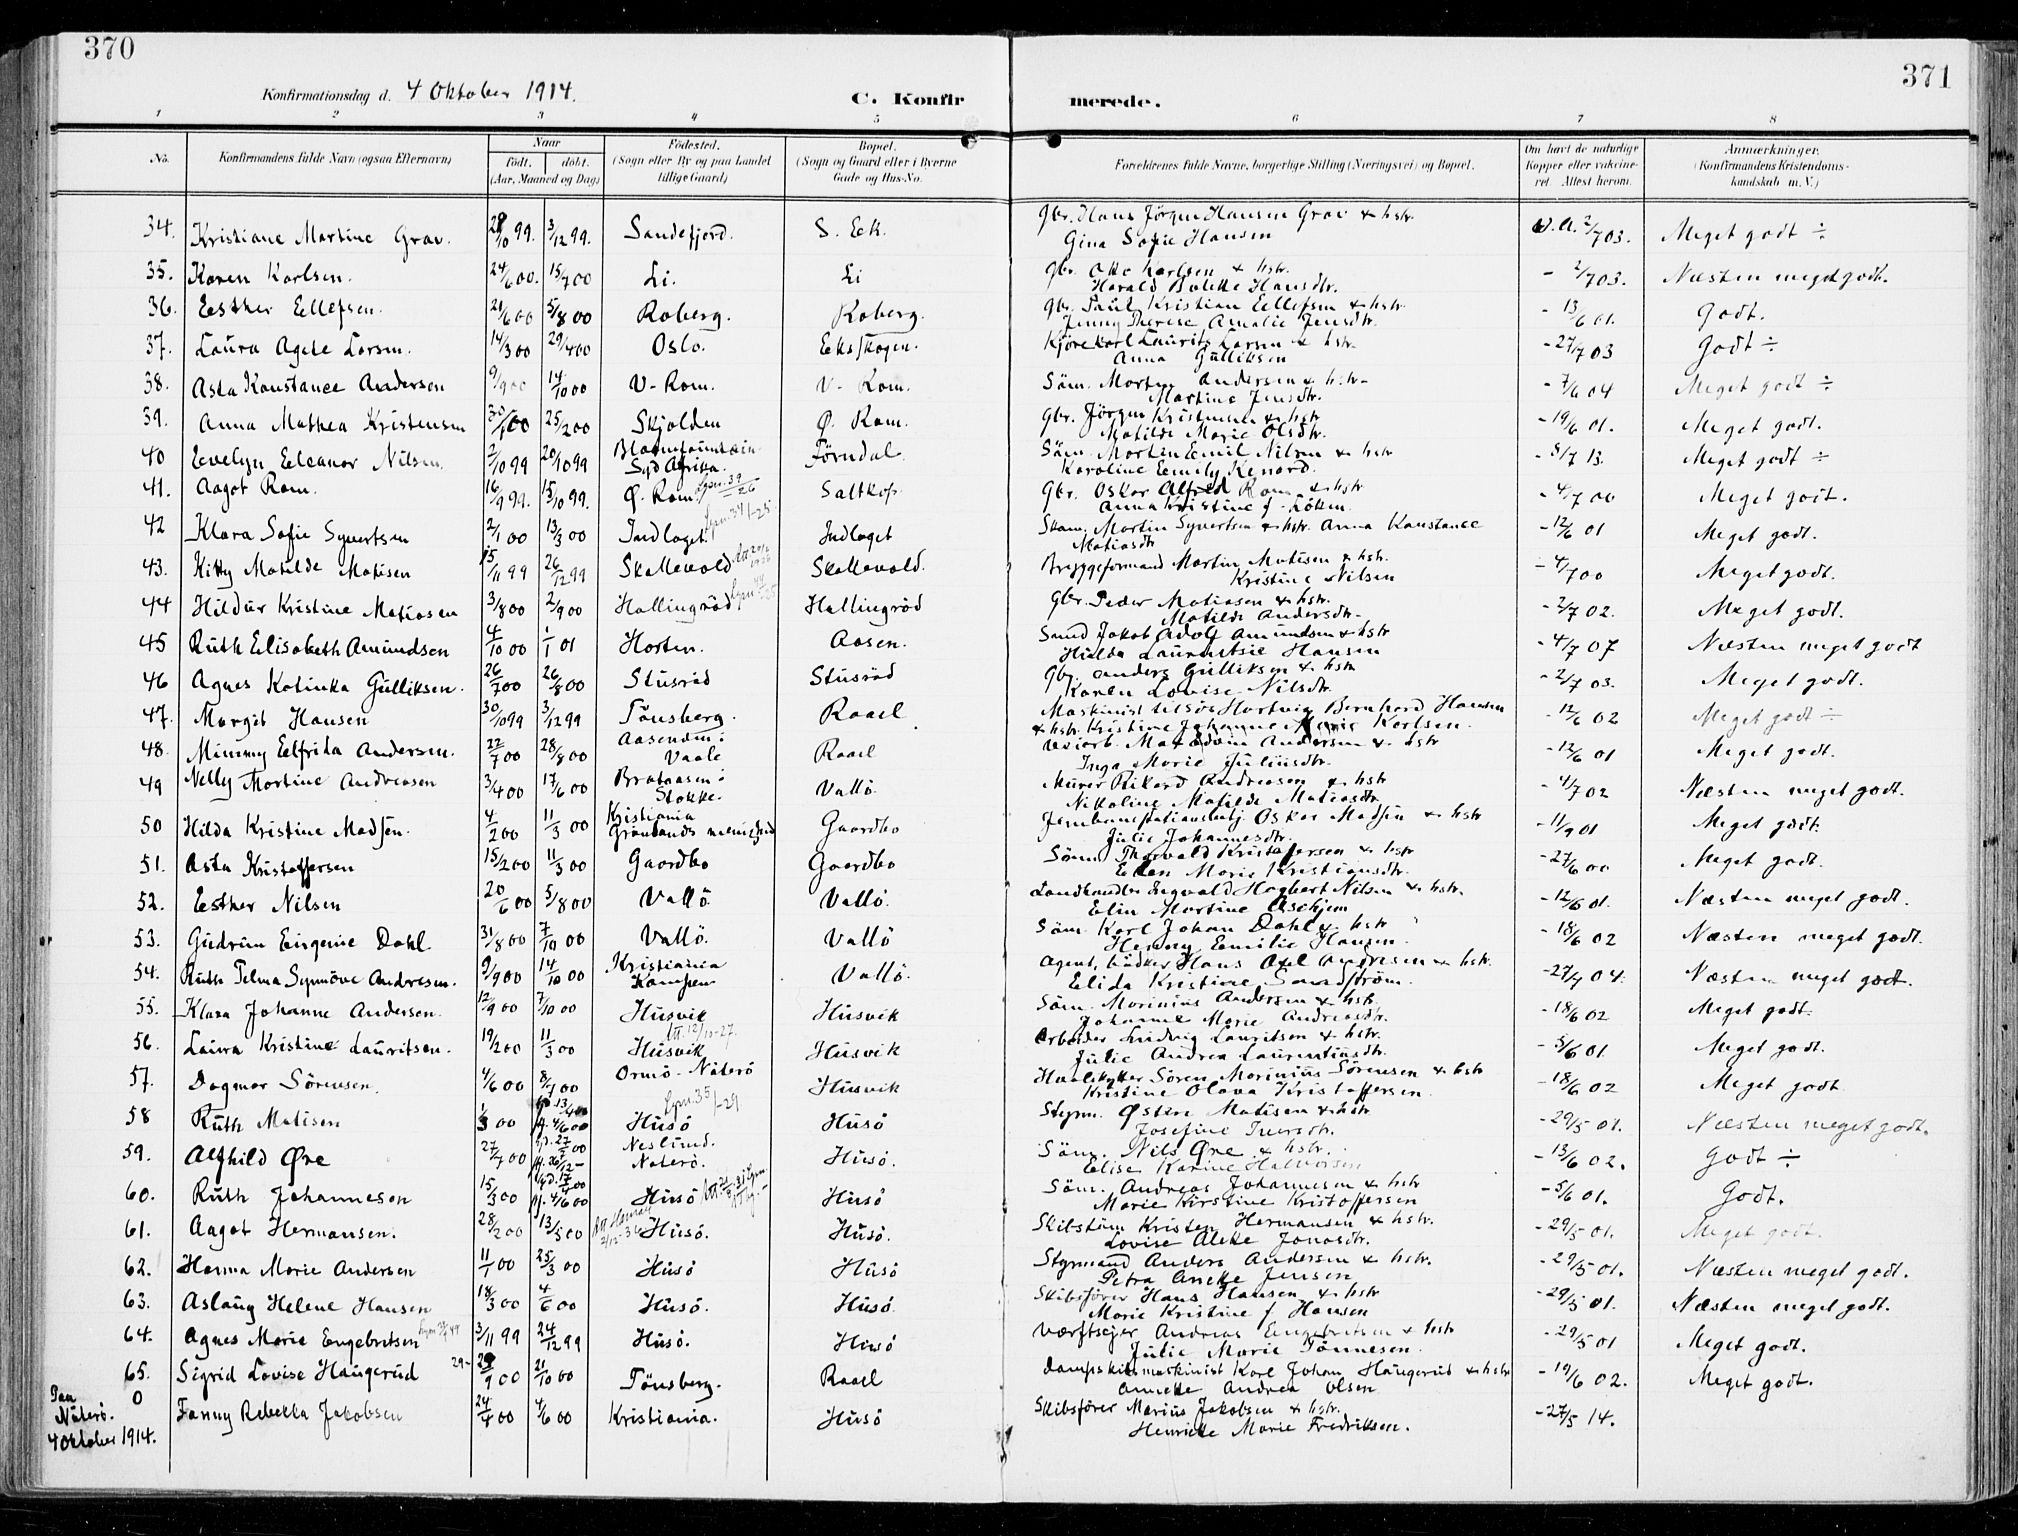 370
371
Konfirmationsdag d. 4 Oktober 1914.
C. Konfir
merede.
1 2 3 4 5 6 7 8
No.
Konfirmandens fulde Navn (ogsaa Efternavn)
Naar
født. døbt.
(Aar, Maaned og Dag)
Fødested.
(Sogn eller By og paa Landet
tillige Gaard)
Bopæl.
(Sogn og Gaard eller i Byerne
Gade og Hus-No.
Forældrenes fulde Navne, borgerlige Stilling (Næringsvei) og Bopæl.
Om havt de naturlige
Kopper eller vakcine-
ret. Attest herom.
Anmærkninger.
(Konfirmandens Kristendoms-
kundskab m. V.)
34. Kristiane Martine Grav. 28/10 99. 3/12 99. Sandefjord. S. Eek. Gbr. Hans Jörgen Hansen Grav & hstr. Gina Sofie Hansen 2/7 03. Meget godt ÷
35. Karen Karlsen. 24/6 00. 15/7 00 Li. Li Gbr. Karlsen & hstr. - 2/7 03. Næsten meget godt.
36. Eesther Eellefsen. 21/6 00 5/8 00 Roberg. Roberg. Gbr. Paul Kristian Eellefsen & hstr. Jenny Therese Amalie Jensdtr. - 13/6 01. Godt.
37. Laura Agete Larsen. 14/3 00 29/4 00 Oslo. Eekskogen. Kjörekarl Laurits Larsen & hstr. Anna Gulliksen - 27/7 03 Godt ÷
38. Asta Konstance Andersen 9/9 00 14/10 00 V- Rom. V- Rom. Söm. Morten Andersen & hstr- Martine Jensdtr. - 7/6 04 Meget godt ÷
39. Anna Mathea Kristensen 25/2 00 Skjolden Ø. Rom. Gbr. Jörgen Kristensen & hstr Matilde Marie Olsdtr. - 19/6 01. Meget godt.
40 Eevelyn Eeleanor Nilsen. 2/10 99 20/10 99 Bloemfountain Syd Afrika. Förndal. Söm. Martin Emil Nilsen & hstr Karoline Eemily Kenard. - 5/7 13. Meget godt ÷
41. Aagot Rom. 16/9 99. 15/10 99. Ø. Rom. Saltkop. Gbr. Oskar Alfred Rom & hstr Anna Kristine f. Löken. - 4/7 00 Meget godt.
42 Klara Sofie Syvertsen 2/1 00 13/3 00 Indlaget. Indlaget Martin Syvertsen & hstr. Anna Konstance Matiasdtr - 12/6 01 Meget godt.
43. Kitty Matilde Matisen 15/11 99 26/12 99 Skallevold Skallevold. Bryggeformand Martin Matisen & hstr. Kristine Nilsen - 4/7 00 Meget godt.
44 Hildur Kristine Matiasen 3/8 00 2/9 00 Hallingröd Hallingröd Gbr. Peder Matiasen & hstr. Matilde Andersdtr. - 2/7 02. Meget godt.
45 Ruth Elisabeth Amundsen 4/10 00 1/1 01 Horten. Aasen. Jakob Adolf Amundsen & hstr Hulda Laurentsie Hansen - 4/7 07 Næsten meget godt
46 Agnes Katinka Gulliksen. 26/7 00 26/8 00 Stusröd Stusröd Gbr. Anders Gulliksen & hstr Karen Lovise Nilsdtr. - 2/7 03. Meget godt.
47. Margit Hansen 30/10 99 3/12 99 Tönsberg. Raael Maskinist tilsös Hartvig Bernhard Hansen & hstr. Kristine Johanne Marie Karlsen. - 12/6 02 Meget godt ÷
48. Mimmy Eelfrida Andersen. 22/7 00 28/8 00 Aasenden: Vaale Raael Andersen & hstr Inga Marie Juliusdtr. - 12/6 01 Meget godt.
49 Nelly Martine Andreasen 3/4 00 17/6 00 Brataasen: Stokke. Vallö. Murer Rikard Andreasen & hstr Nikoline Matilde Matiasdtr - 4/7 02 Næsten meget godt.
50 Hilda Kristine Madsen. 4/2 00 11/3 00 Kristiania Grönlands menighed Gaardbo Oskar Madsen & hstr Julie Johannesdtr. - 11/9 01 Meget godt.
51. Asta Kristoffersen 15/2 00 11/3 00 Gaardbo Gaardbo Söm. Thorvald Kristoffersen & hstr Ellen Marie Kristiansdtr. - 27/6 00 Meget godt.
52. Eesther Nilsen 20/6 00 5/8 00 Vallö Vallö. Landhandler Ingvald Hagbart Nilsen & hstr. Elin Martine Aschjem - 12/6 01. Næsten meget godt.
53. Gudrun Eugenie Dahl 31/8 00 7/10 00 Vallö. Vallö Söm. Karl Johan Dahl & hstr Hanny Eemilie Hansen. - 18/6 02 Næsten meget godt.
54. Ruth Telma Synnöve Andresen. 9/9 00 14/10 00 Kristiania Kampen Vallö. Agent, bödker Hans Axel Andresen & hstr. Elida Kristine Sandström. - 27/7 04. Næsten meget godt.
55. Klara Johanne Andersen. 12/9 00 7/10 00 Husvik Husvik Söm. Marinius Andersen & hstr. Johanne Marie Andreasdtr. - 18/6 02 Meget godt.
56. Laura Kristine Lauritsen. 19/2 00 11/3 00 Att. 12/10-27. Husvik Husvik Arbeider Ludvig Lauritsen & hstr. Julie Andrea Laurentiusdtr. - 5/6 01. Meget godt.
57. Dagmar Sörensen. 4/6 00 8/7 00 Ormö - Nöterö Husvik Hvalskytter Sören Marinius Sörensen & hstr Kristine Olava Kristoffersen. - 18/6 02 Meget godt.
58 Ruth Matisen 1/3 00 Husö Husö Styrm. Östen Matisen & hstr Josefine Iversdtr. - 29/5 01. Næsten meget godt.
59. Alfhild Øre 27/7 00 Neslund. Nöterö. Husö. Söm. Nils Øre & hstr. Elise Karine Halvorsen - 13/6 02. Godt ÷
60. Ruth Johannesen 15/3 00 Husö Husö Söm. Andreas Johannesen & hstr Marie Kirstine Kristoffersen - 5/6 01. Godt.
61. Aagot Hermansen. 28/2 00 13/5 00 Husö. Husö. Skibstöm. Kristen Hermansen & hstr. Lovise Aleke Jonasdtr. - 29/5 01. Meget godt.
62. Hanna Marie Andersen 11/1 00 25/3 00 Husö Husö Styrmand Anders Andersen & hstr. Petra Aneke Jensen - 29/5 01. Næsten meget godt.
63. Aslaug Helene Hansen 18/3 00 4/6 00 Husö. Husö. Skibsförer Hans Hansen & hstr Marie Kristine f. Hansen - 29/5 01. Næsten meget godt.
64. Agnes Marie Engebretsen 3/11 99 24/12 99 Husö. Husö Værftseier Andreas Engebretsen & hstr Julie Marie Tönnesen. - 29/5 01 Meget godt.
65. Sigrid Lovise Haugerud 29- 29/9 00 21/10 00 Tönsberg. Raael Dampskibsmaskinist Karl Johan Haugerud & hstr Annette Andrea Olsen - 19/6 02. Meget godt.
Paa Nöterö. 4 Oktober 1914. 0 Fanny Rebekka Jakobsen 24/4 00 4/6 00 Kristiania. Husö Skibsförer Marius Jakobsen & hstr. Henriette Marie Fredriksen. - 27/5 14.